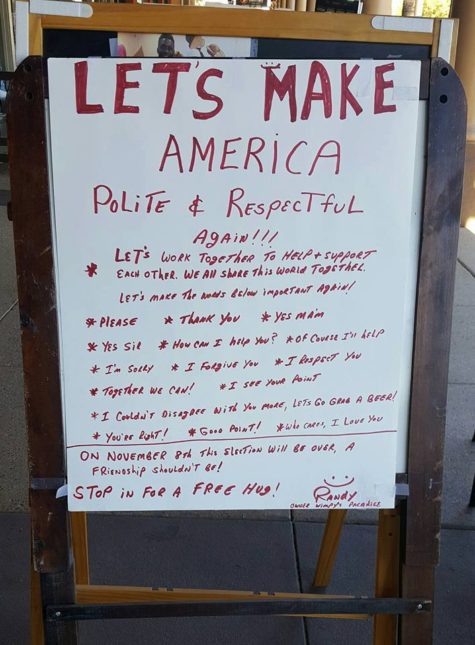 LET'S MAKE
AMERICA
POLITE & RESPECTFUL
AGAIN!!!
* LET'S WORK TOGETHER TO HELP + SUPPORT
EACH OTHER. WE ALL SHARE THIS WORLD TOGETHER.
LET'S MAKE THE WORDS BELOW IMPORTANT AGAIN!
* PLEASE * THANK YOU * YES MA'M
* YES SIR * HOW CAN I HELP YOU? * OF COURSE I'LL HELP
* I'M SORRY * I FORGIVE YOU * I RESPECT YOU
* TOGETHER WE CAN! * I SEE YOUR POINT
* I COULDN'T DISAGREE WITH YOU MORE, LETS GO GRAB A BEER!
* YOU'RE RIGHT! * GOOD POINT! * WHO CARES, I LOVE YOU
ON NOVEMBER 8TH THIS ELECTION WILL BE OVER, A
FRIENDSHIP SHOULDN'T BE!
STOP IN FOR A FREE HUG!
RANDY
OWNER WIMPY'S PARADISE